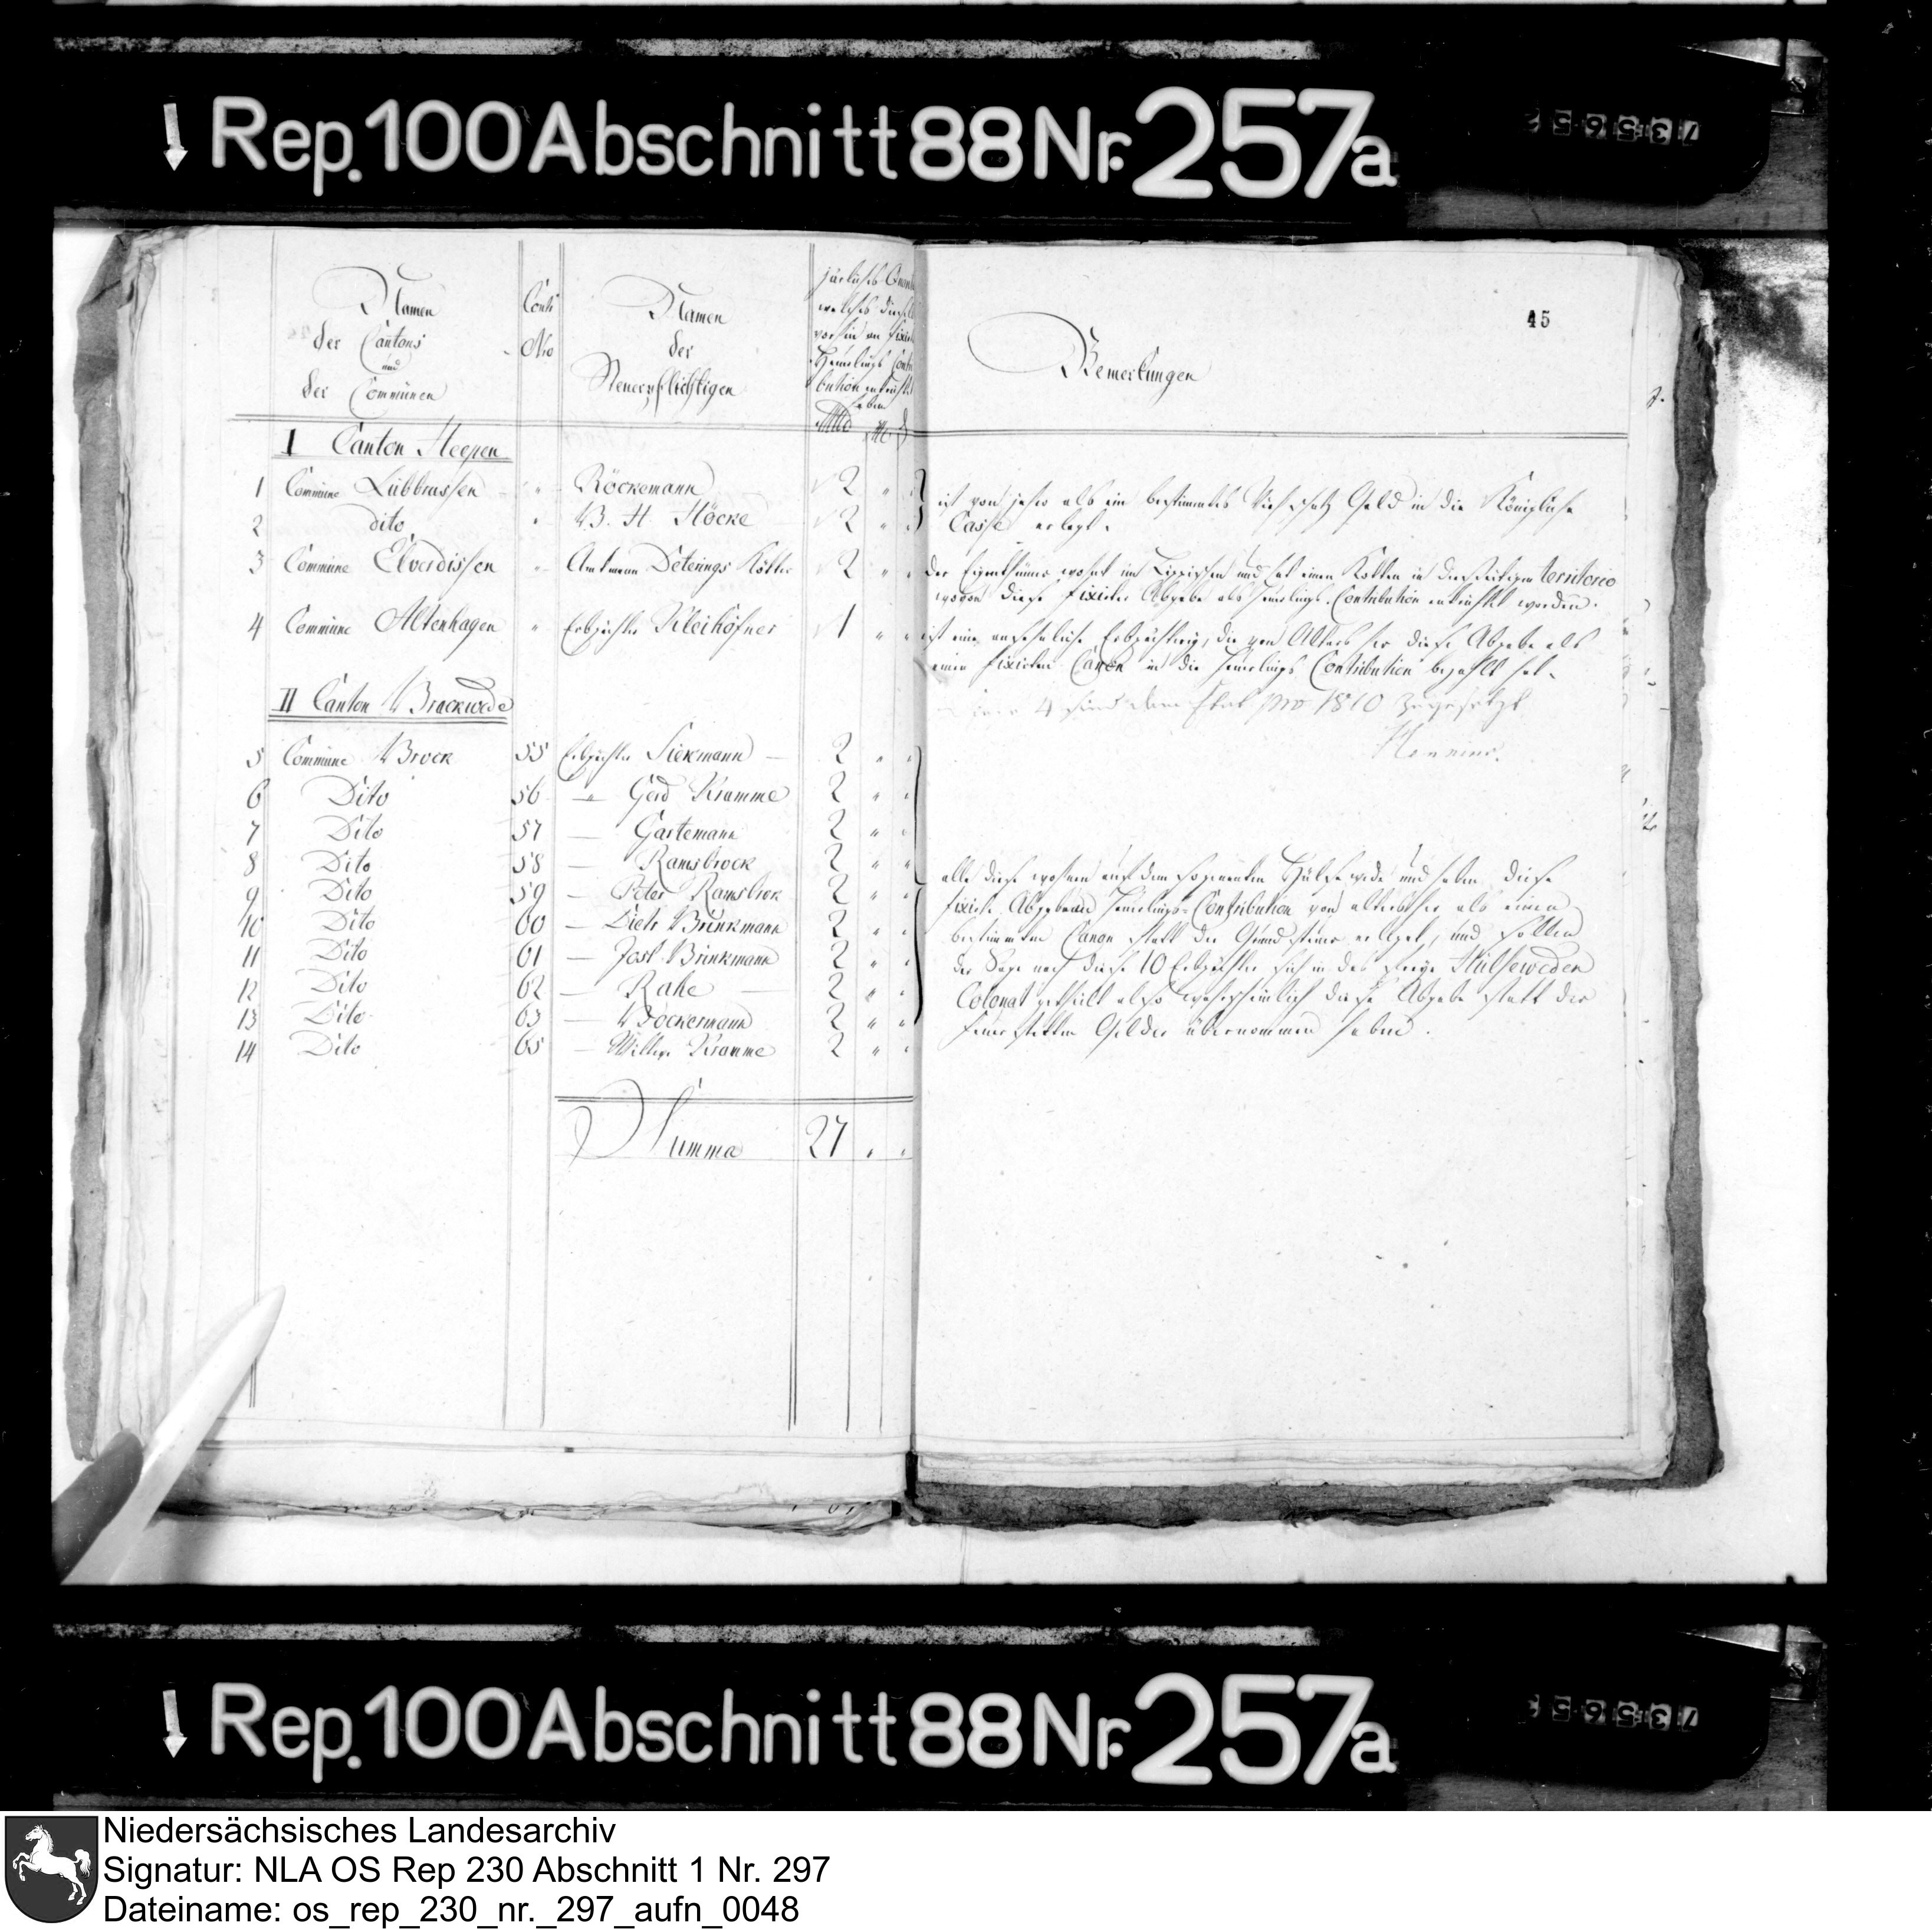 Rep. 100 Abschnitt 88 Nr. 257a
Namen
der Cantons
und
der Communen
Conti
Nro
Namen
der
Steuerpflichtigen
jährliches
welches
vorhin an
Heuerlings
bution
haben
45
Bemerkungen
I Canton Heepen
1 Commune Lübbrassen " Röckemann 2 "
2 dito " B. H. Höcke 2 "
ist von jeher als ein bestimmtes Viehschatz Geld in die Königliche
Casse erlegt.
3 Commune Elverdissen " Amtmann Deterings Kotten 2 " "
der Eigenthümer wohnt im Lippischen und hat einen Kotten in diesseitigem territorio
wovon diese fixirte Abgabe als Heuerlings Contribution entrichtet worden.
4 Commune Altenhagen " Erbpächter Kleihöfner 1 " "
ist eine ansehnliche Erbpächterey, die von Alters her diese Abgabe als
einen fixirten Canon in die Heuerlings Contribution bezahlt hat.
4 sind dem Etat pro 1810 zugesetzt
II Canton Brackwede
5 Commune Brock 55 Erbpächter Siekmann — 2 " "
6 Dito 56 — Gerd Kramme 2 " "
7 Dito 57 — Gartemann 2 " "
8 Dito 58 — Ramsbrock 2 " "
9 Dito 59 — Peter Ramsbrok 2 " "
10 Dito 60 — Dietr Brinkmann 2 " "
11 Dito 61 — Jost Brinkmann 2 " "
12 Dito 62 — Rahe — 2 " "
13 Dito 63 — Böckermann 2 " "
14 Dito 65 — Wilhe Kramme 2 " "
alle diese wohnen auf dem sogenannten Hülsewede und haben diese
fixirte Abgabe Heuerlings-Contribution von altersher als einen
bestimmten Canon statt der Grundsteuer erlegt, und sollen
der Sage nach diese 10 Erbpächter sich in das Hülseweden
Colonat getheilt also wahrscheinlich diese Abgabe statt der
Gelder übernommen haben.
Summa 27 " "
Rep. 100 Abschnitt 88 Nr. 257a
Niedersächsisches Landesarchiv
Signatur: NLA OS Rep 230 Abschnitt 1 Nr. 297
Dateiname: os_rep_230_nr._297_aufn_0048